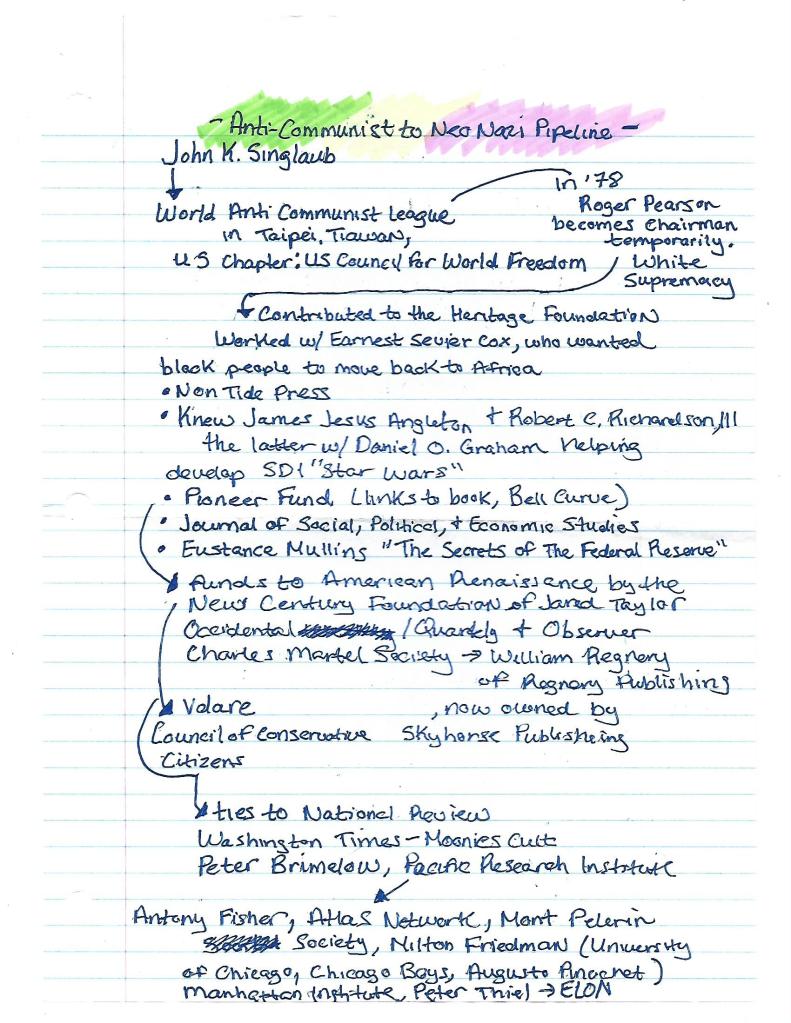 - Anti-Communist to Neo Nazi Pipeline -
John K. Singlaub
in '78
World Anti Communist League
Roger Pearson
becomes chairman
in Taipei, Tiawan,
temporarily.
US Chapter: US Council for World Freedom
White
Supremacy
Contributed to the Heritage Foundation
Worked w/ Earnest Sevier Cox, who wanted
black people to move back to Africa
• Non Tide Press
• Knew James Jesus Angleton + Robert C. Richardson, III
the latter w/ Daniel O. Graham helping
develop SDI "Star Wars"
• Pioneer Fund (Links to book, Bell Curve)
• Journal of Social, Political, + Economic Studies
• Eustance Mullins "The Secrets of The Federal Reserve"
funds to American Renaissance by the
New Century Foundation of Jared Taylor
Occidental / Quartely + Observer
Charles Martel Society → William Regnery
of Regnery Publishing
Vdare , now owned by
Council of Conservative Skyhorse Publisheing
Citizens
ties to National Review
Washington Times - Moonies Cult
Peter Brimelow, Pacific Research Institute
Antony Fisher, Atlas Network, Mont Pelerin
Society, Milton Friedman (University
of Chicago, Chicago Boys, Augusto Pinochet)
Manhattan Institute, Peter Thiel → ELON